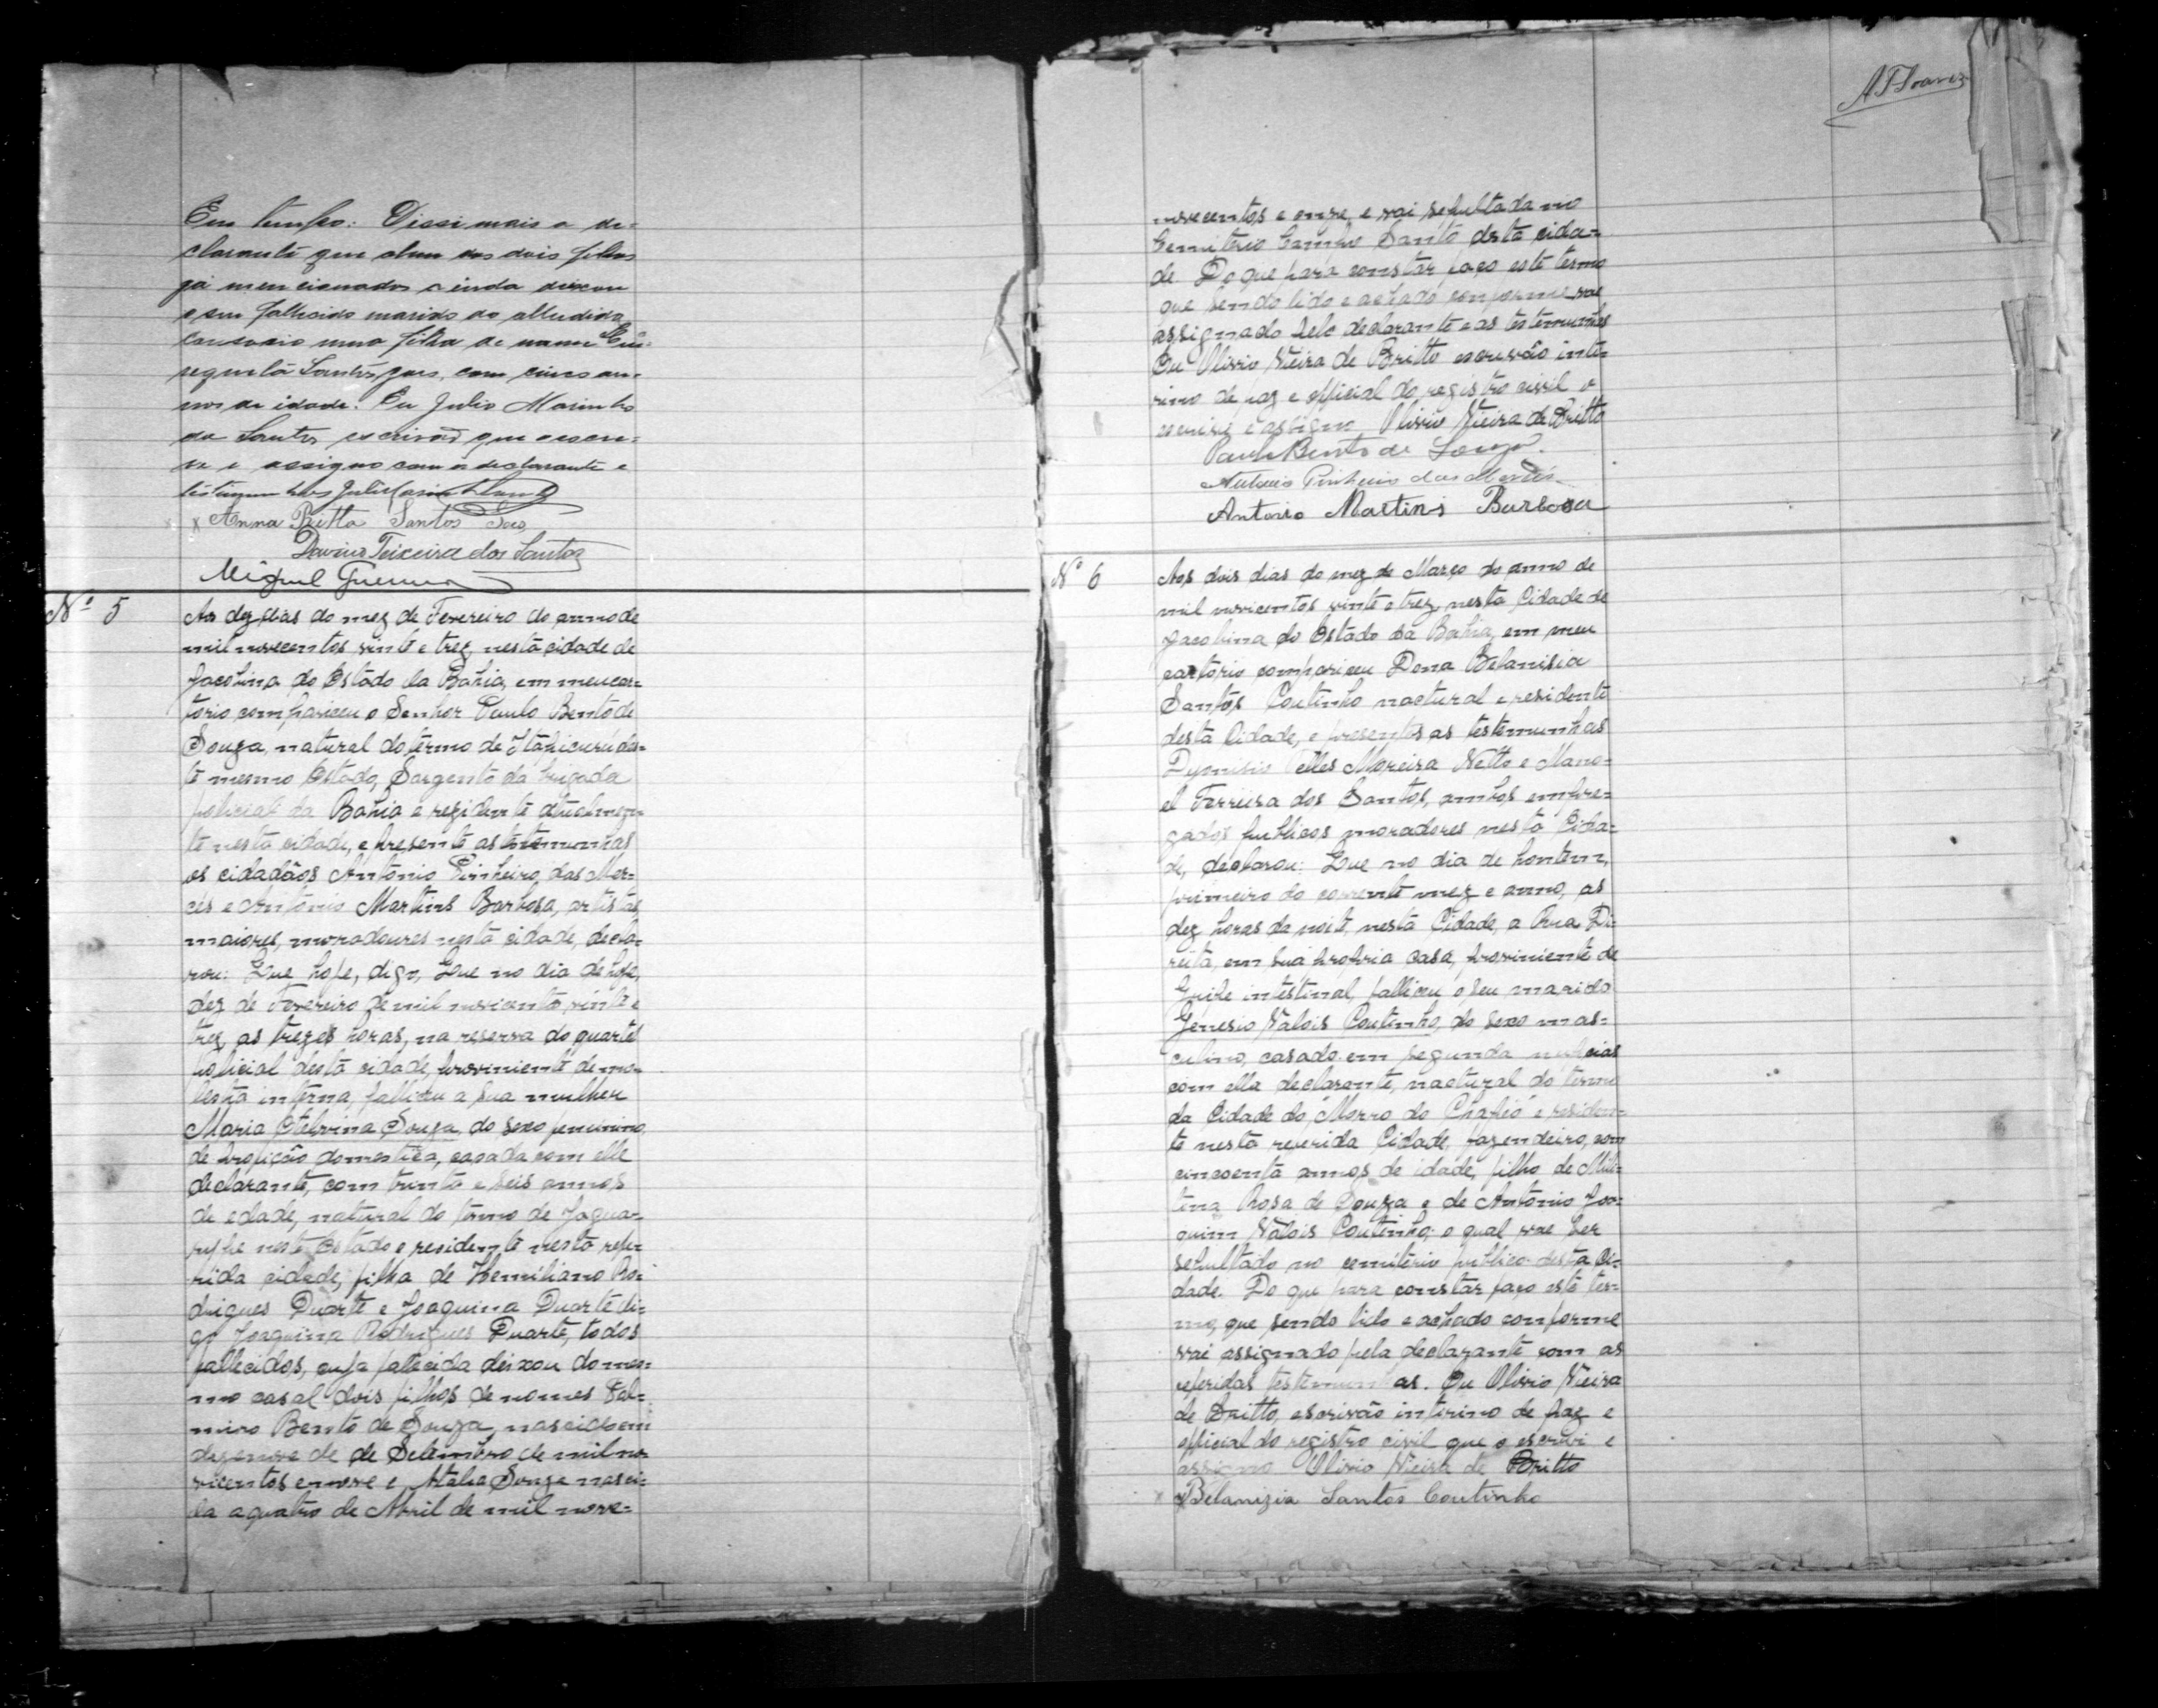 Em tempo: Dissi mais a de-
clarante que alem dos dois filhos
já mencionados ainda deixou
o seu fallicido marido do alludido
consorcio uma filha de nome
Santos, com cinco an-
nos de idade. Eu Julio Marinho
de Santos escrivão que escre-
ve e assigno com a declarante e
testimunhas
Anna Britto Santos
Teixeira dos Santos
Miguel
Nº 5
Aos dez dias do mez de Fevereiro do anno de
mil novecentos vinte e trez, nesta cidade de
Jacobina do Estado da Bahia, em meu car-
torio compariceu o Senhor Paulo Bento de
Souza, natural do termo de Itapicurú des-
te mesmo Estado, Sargento da brigada
policial da Bahia e rezidente atualmen-
te nesta cidade, e presente as testemunhas
os cidadãos Antonio Pinheiro das Mer-
cês e Antonio Martins Barbosa, artistas,
maiores, moradoures nesta cidade, decla-
rou: Que hoje, digo, Que no dia de hoje,
dez de Fevereiro de mil novicentos vinte e
trez, as trezes horas, na reserva do quartel
policial desta cidade, proviniente de mo-
lestia interna, falliceu a sua mulher
Maria Souza, do sexo feminino,
de profição domestica, casada com elle
declarante, com trinta e seis annos
de edade, natural do termo de Jagua-
ripe neste Estado e residente nesta refe-
rida cidade, filha de Hemiliano Ro-
drigues Duarte e Joaquina Duarte di-
go Joaquina Rodrigues Duarte, todos
fallecidos, cuja falecida deixou do mes-
mo casal dois filhos de nomes
Bento de Souza, nascido em
desenove de de Setembro de mil no-
vicentos e nove e Souza nasci-
da a quatro de Abril de mil nove-
A T Soares
novecentos e onze, e vai sepultada no
Cemiterio Campo Santo desta cida-
de. Do que para constar faço este termo
que sendo lido e achado conforme vae
assignado pelo declarante e as testemunhas
Eu Olivio Vieira de Britto escrivão inte-
rino de paz e official do registro civil o
escrivi e assigno Olivio Vieira de Britto
Paulo Bento de Souza.
Antonio Pinheiro das Mercês
Antonio Martins Barbosa
Nº 6
Aos dois dias do mez de Março do anno de
mil novicentos vinte e trez, nesta Cidade de
Jacobina do Estado da Bahia, em meu
cartorio compariceu Dona Belanisia
Santos Coutinho nactural e residente
desta Cidade, e presentes as testemunhas
Dyonisio Telles Moreira Netto e Mano-
el Ferreira dos Santos, ambos empre-
gados publicos moradores nesta Cida-
de, declarou: Que no dia de hontem,
primeiro do corrente mez e anno, as
dez horas da noite, nesta Cidade, a Rua Di-
reita, em sua propria casa, proviniente de
Gripe intestinal, falliceu o seu marido
Genesio Valois Coutinho, do sexo mas-
culino, casado em segunda nupcias
com ella declarante, nactural do termo
da Cidade do "Morro do Chapeó" e residen-
te nesta referida Cidade, fazendeiro, com
cincoenta annos de idade, filho de
Rosa de Souza e de Antonio Joa-
quim Valois Coutinho; o qual vae ser
sepultado no cemiterio publico desta Ci-
dade. Do que para constar faço este ter-
mo, que sendo lido e achado conforme
vai assignado pela declarante com as
referidas testemunhas. Eu Olivio Vieira
de Britto, escrivão interino de paz e
official do registro civil que o escrivi e
assigno Olivio Vieira de Britto
Belanizia Santos Coutinho